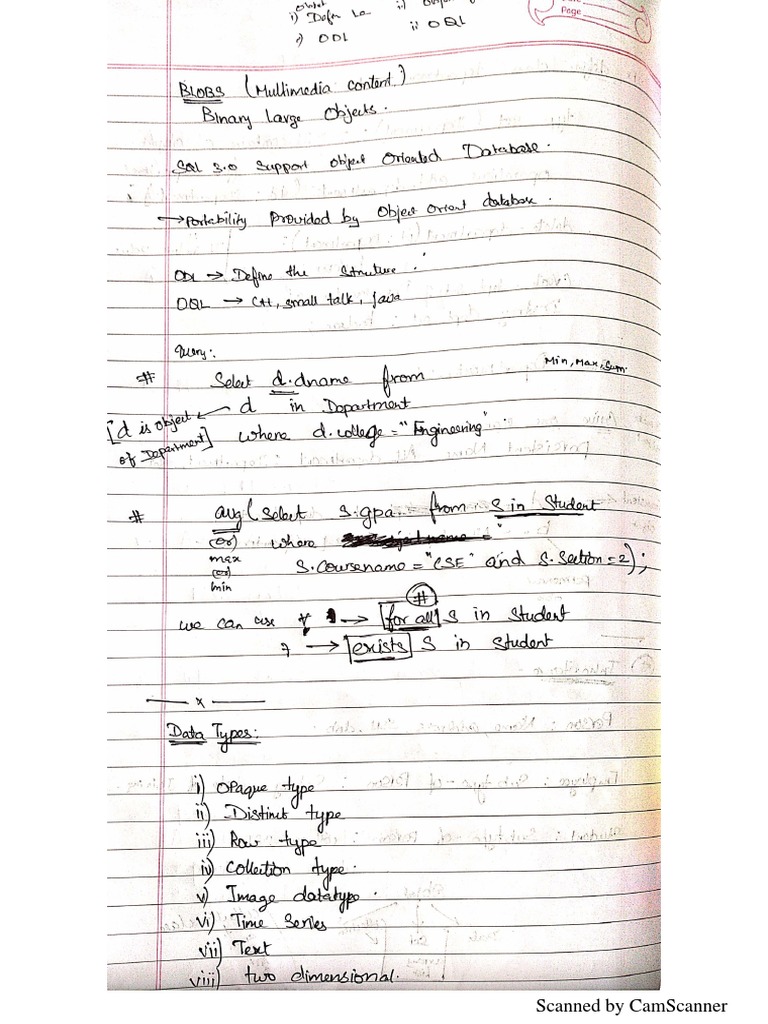 Page
i) Defn
ii)
i) ODL
ii OQL
BLOBS (Multimedia content)
Binary Large Objects.
SQL 3.0 Support object Oriented Database.
→ Portability Provided by Object Orient database.
ODL → Define the Structure.
OQL → C++, small talk, java
Query:
Min, Max, Sum.
# Select d.dname from
d in Department
[d is object of Department]
where d.college = "Engineering"
# avg (Select S.gpa from S in Student
(or) where
max S.Coursename = "CSE" and S.Section = 2);
(or)
min
#
we can use ∀ → for all S in Student
∃ → exists S in Student
— x —
Data Types:
i) Opaque type
ii) Distinct type
iii) Row type
iv) Collection type.
v) Image datatype.
vi) Time Series
vii) Text
viii) two dimensional.
Scanned by CamScanner